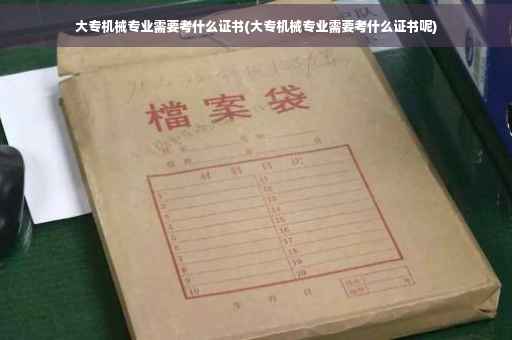 大专机械专业需要考什么证书(大专机械专业需要考什么证书呢)
檔案袋
材料目次
1 11
2 12
3 13
4 14
5 15
6 16
7 17
8 18
9 19
10 20
年 月 日